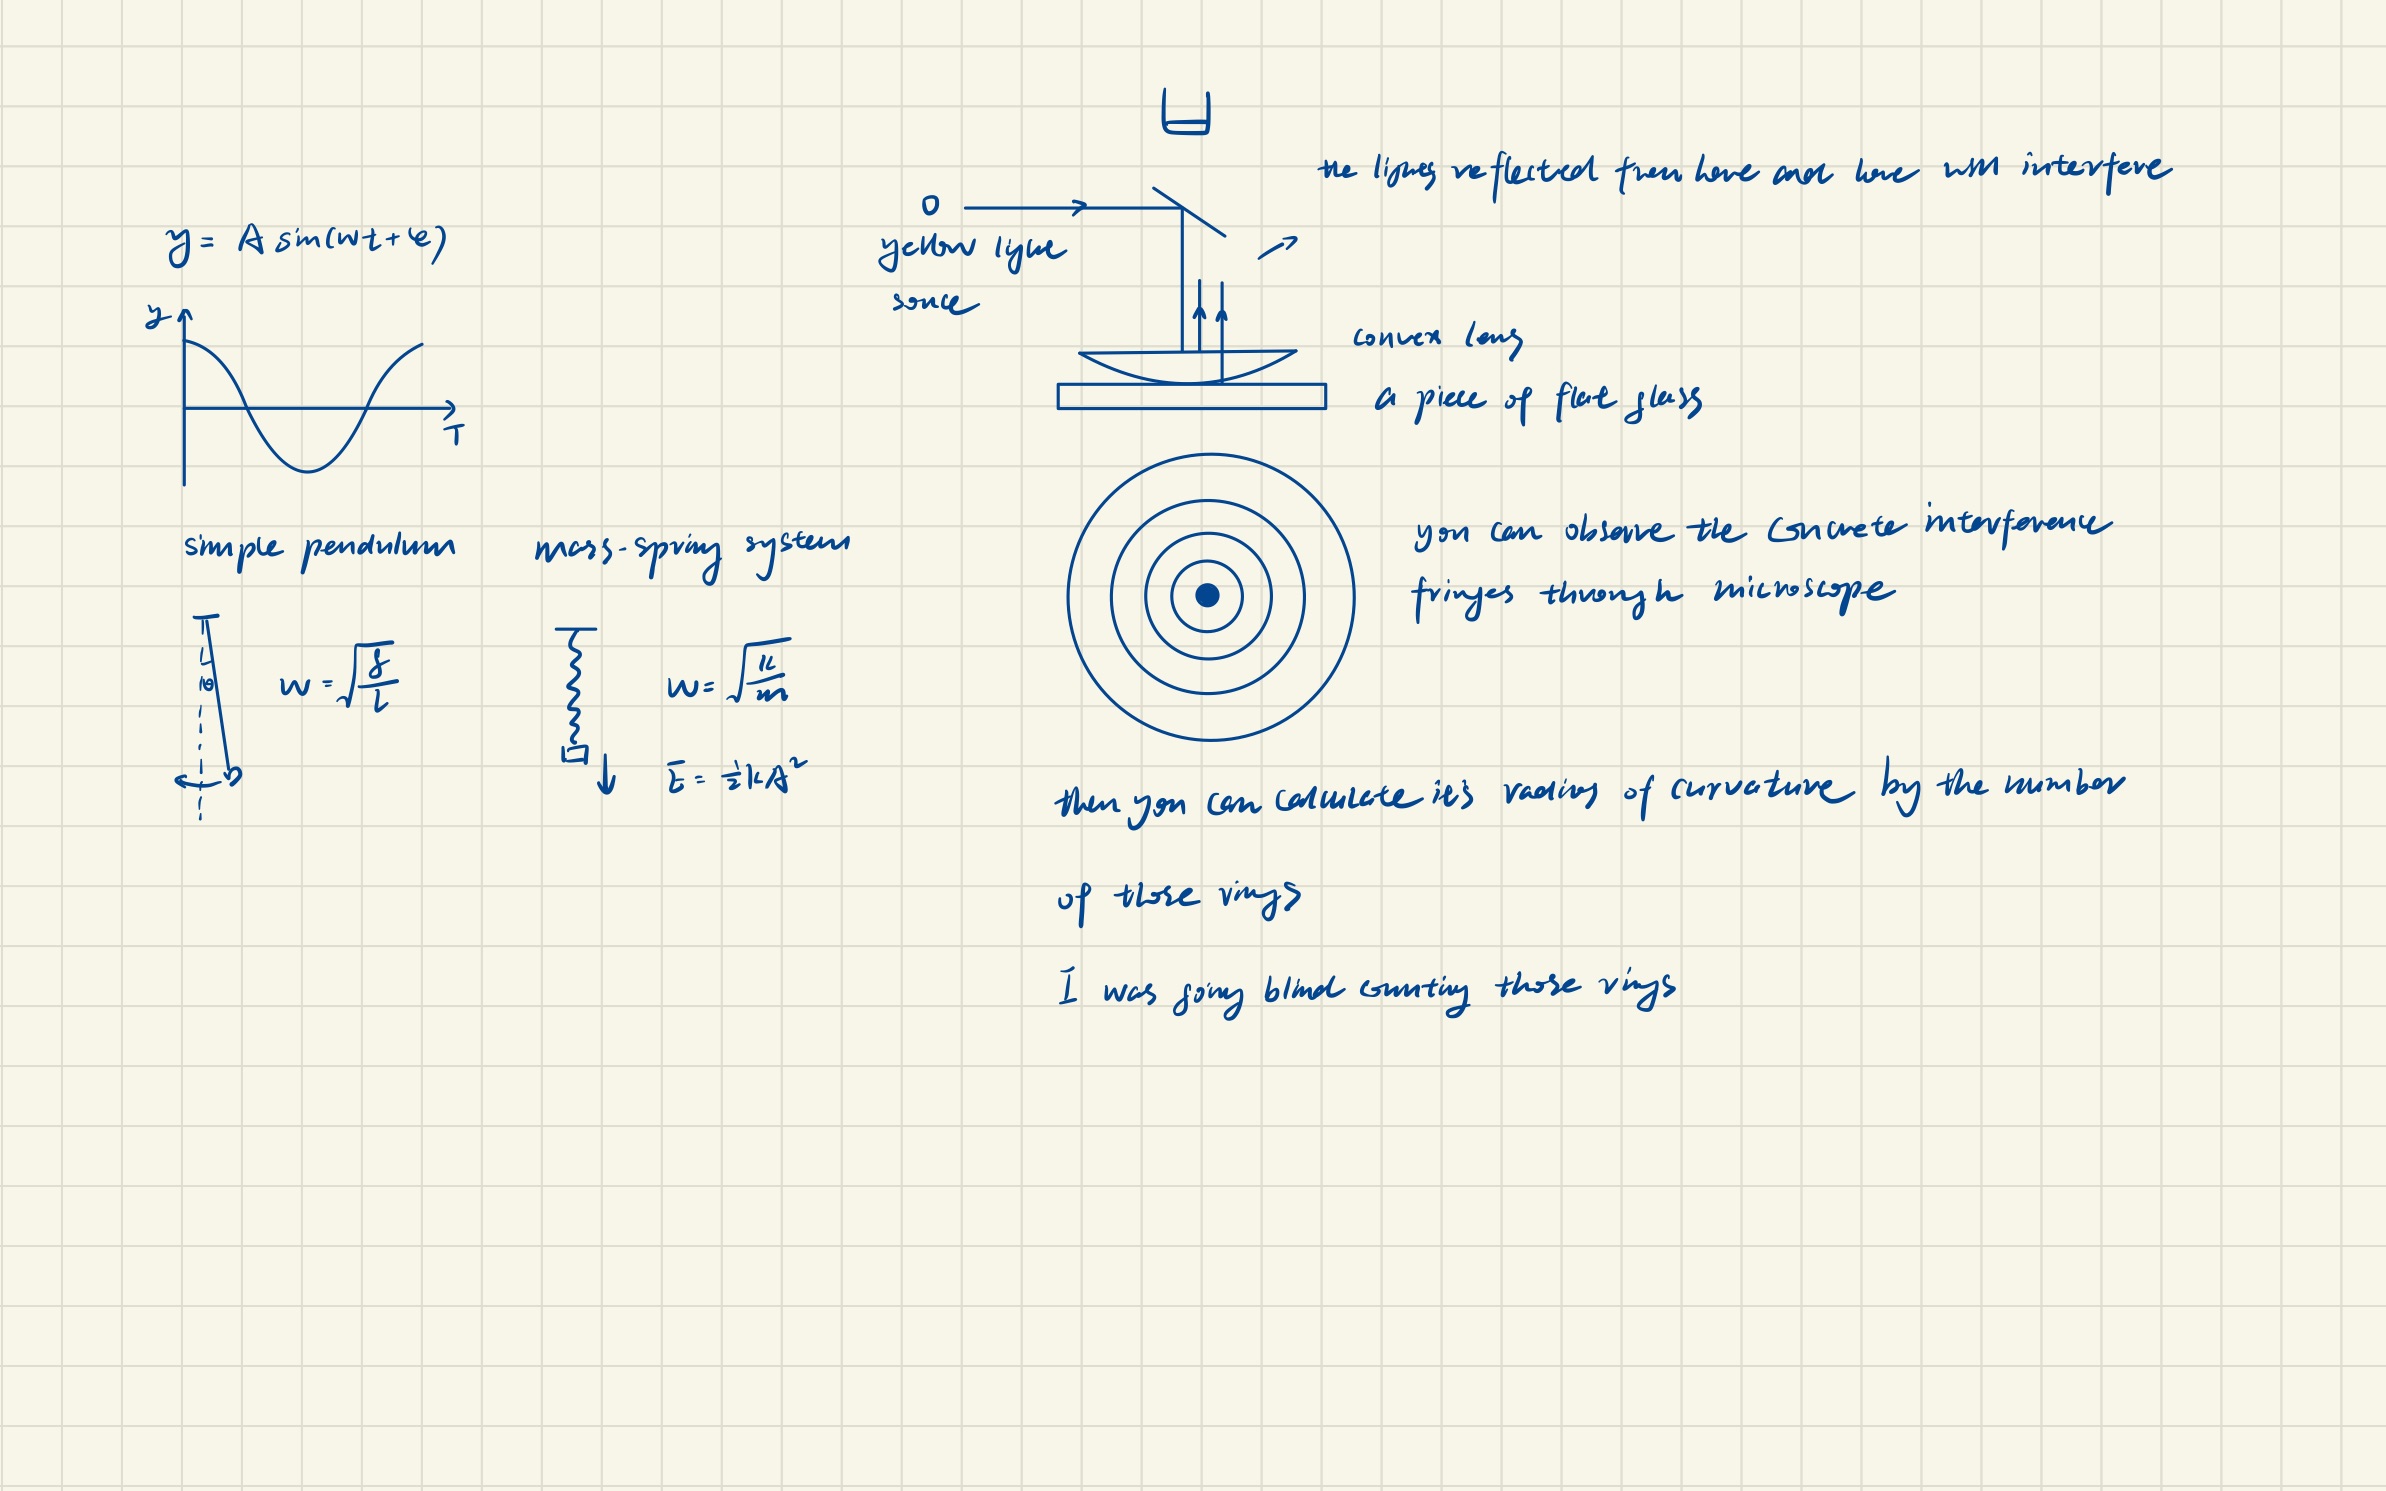 y = A sin(wt+φ)
y
T
simple pendulum
mass-spring system
θ
w = √(g/l)
w = √(k/m)
E = ½kA²
the lights reflected from here and here will interfere
yellow light
source
convex lens
a piece of flat glass
you can observe the concrete interference
fringes through microscope
then you can calculate it's radius of curvature by the number
of those rings
I was going blind counting those rings